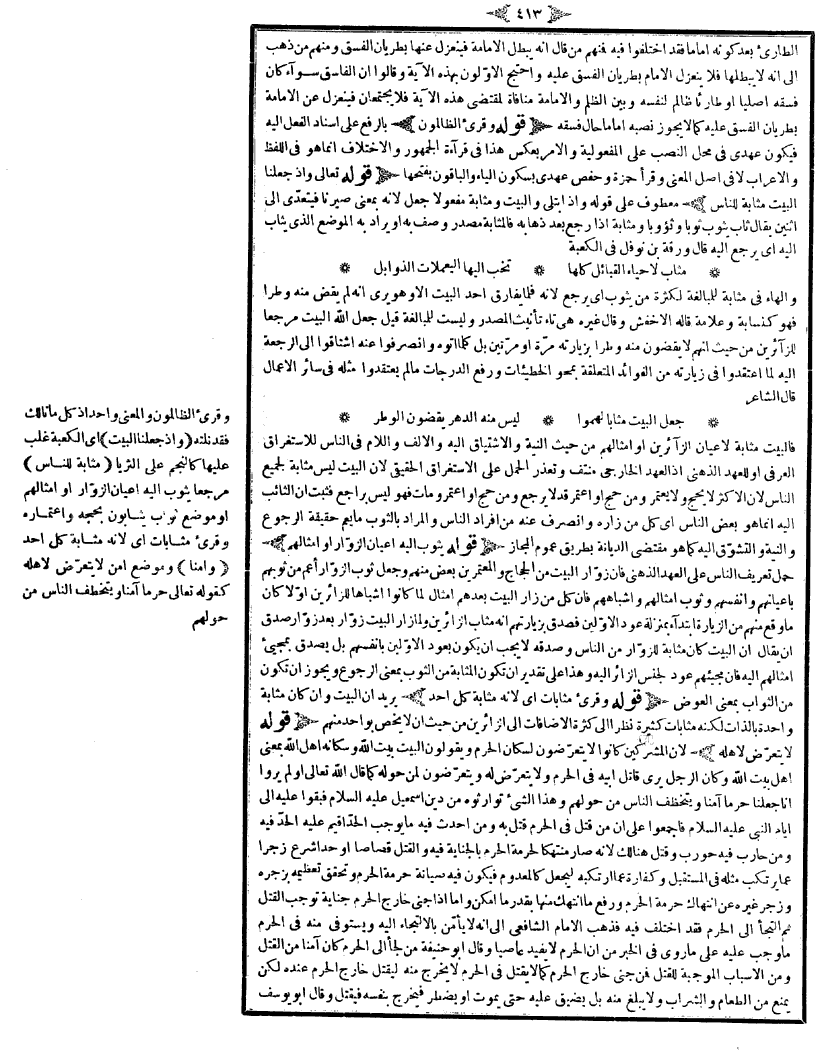 ٤١٣
الطارئ بعد كونه اماما فقد اختلفوا فيه فمنهم من قال انه يبطل الامامة فينعزل عنها بطريان الفسق ومنهم من ذهب
الى انه لا يبطلها فلا ينعزل الامام بطريان الفسق عليه واحتج الاولون بهذه الآية وقالوا ان الفاسق سوآء كان
فسقه اصليا او طارئا ظالم لنفسه وبين الظلم والامامة منافاة لمقتضى هذه الآية فلا يجتمعان فينعزل عن الامامة
بطريان الفسق عليه كما لا يجوز نصبه اماما حال فسقه ﴿ قوله وقرئ الظالمون ﴾ بالرفع على اسناد الفعل اليه
فيكون عهدى فى محل النصب على المفعولية والامر بعكس هذا فى قرآءة الجمهور والاختلاف انما هو فى اللفظ
والاعراب لا فى اصل المعنى وقرأ حمزة وحفص عهدى بسكون الياء والباقون بفتحها ﴿ قوله تعالى واذ جعلنا
البيت مثابة للناس ﴾ معطوف على قوله واذ ابتلى والبيت ومثابة مفعولا جعل لانه بمعنى صير نا فيتعدى الى
اثنين يقال ثاب يثوب ثوبا وثؤوبا ومثابة اذا رجع بعد ذهابه فالمثابة مصدر وصف به او يراد به الموضع الذى يثاب
اليه اى يرجع اليه قال ورقة بن نوفل فى الكعبة
❊ مثاب لاحياء القبائل كلها ❊ تخب اليها اليعملات الذوابل ❊
والهاء فى مثابة للمبالغة لكثرة من يثوب اى يرجع لانه قلما يفارق احد البيت الا وهو يرى انه لم يقض منه وطرا
فهو كنسابة وعلامة قاله الاخفش وقال غيره هى تاء تأنيث المصدر وليست للمبالغة قيل جعل الله البيت مرجعا
للزآئرين من حيث انهم لا يقضون منه وطرا بزيارته مرة او مرتين بل كلما اتوه وانصرفوا عنه اشتاقوا الى الرجعة
اليه لما اعتقدوا فى زيارته من الفوائد المتعلقة بمحو الخطيئات ورفع الدرجات مالم يعتقدوا مثله فى سائر الاعمال
قال الشاعر
❊ جعل البيت مثابا لهموا ❊ ليس منه الدهر يقضون الوطر ❊
فالبيت مثابة لاعيان الزآئرين او امثالهم من حيث النية والاشتياق اليه والالف واللام فى الناس للاستغراق
العرفى او للعهد الذهنى اذ العهد الخارجى منتف وتعذر الحمل على الاستغراق الحقيقى لان البيت ليس مثابة لجميع
الناس لان الاكثر لا يحج ولا يعتمر ومن حج او اعتمر قد لا يرجع ومن حج او اعتمر ومات فهو ليس براجع فثبت ان الثائب
اليه انما هو بعض الناس اى كل من زاره وانصرف عنه من افراد الناس والمراد بالثوب مايعم حقيقة الرجوع
والنية والتشوق اليه كما هو مقتضى الديانة بطريق عموم المجاز ﴿ قوله يثوب اليه اعيان الزوار او امثالهم ﴾
حمل تعريف الناس على العهد الذهنى فان زوار البيت من الحجاج والمعتمرين بعض منهم وجعل ثوب الزوار أعم من ثوبهم
باعيانهم وانفسهم وثوب امثالهم واشباههم فان كل من زار البيت بعدهم امثال لما كانوا اشباها للزائرين اولا كان
ماوقع منهم من الزيارة ابتدآء بمنزلة عود الاولين فصدق بزيارتهم انه مثاب الزائرين ولمازار البيت زوار بعد زوار صدق
ان يقال ان البيت كان مثابة للزوار من الناس وصدقه لا يجب ان يكون بعود الاولين بانفسهم بل يصدق بمجيئ
امثالهم اليه فان مجيئهم عود لجنس الزائر اليه وهذا على تقدير ان تكون المثابة من الثوب بمعنى الرجوع ويجوز ان تكون
من الثواب بمعنى العوض ﴿ قوله وقرئ مثابات اى لانه مثابة كل احد ﴾ يريد ان البيت وان كان مثابة
واحدة بالذات لكنه مثابات كثيرة نظرا الى كثرة الاضافات الى الزائرين من حيث ان لا يخص بواحد منهم ﴿ قوله
لا يتعرض لاهله ﴾ لان المشركين كانوا لا يتعرضون لسكان الحرم ويقولون البيت بيت الله وسكانه اهل الله بمعنى
اهل بيت الله وكان الرجل يرى قاتل ابيه فى الحرم ولا يتعرض له ويتعرضون لمن حوله كما قال الله تعالى اولم يروا
انا جعلنا حرما آمنا ويتخطف الناس من حولهم وهذا الشئ توارثوه من دين اسمعيل عليه السلام فبقوا عليه الى
ايام النبى عليه السلام فاجمعوا على ان من قتل فى الحرم قتل به ومن احدث فيه مايوجب الحد اقيم عليه الحد فيه
ومن حارب فيه حورب وقتل هنالك لانه صار منتهكا لحرمة الحرم بالجناية فيه والقتل قصاصا او حدا شرع زجرا
عما يرتكب مثله فى المستقبل وكفارة عما ارتكبه ليجعل كالمعدوم فيكون فيه صيانة حرمة الحرم وتحقق تعظيمه بزجره
وزجر غيره عن انتهاك حرمة الحرم ورفع ما انتهك منها بقدر ما امكن واما اذا جنى خارج الحرم جناية توجب القتل
ثم التجأ الى الحرم فقد اختلف فيه فذهب الامام الشافعى الى انه لا يأمن بالالتجاء اليه ويستوفى منه فى الحرم
ماوجب عليه على ماروى فى الخبر من ان الحرم لا يفيد عاصيا وقال ابو حنيفة من لجأ الى الحرم كان آمنا من القتل
ومن الاسباب الموجبة للقتل فمن جنى خارج الحرم كما لا يقتل فى الحرم لا يخرج منه ليقتل خارج الحرم عنده لكن
يمنع من الطعام والشراب ولا يبلغ منه بل يضيق عليه حتى يموت او يضطر فيخرج بنفسه فيقتل وقال ابو يوسف
وقرئ الظالمون والمعنى واحد اذ كل مانالك
فقد نلته (واذ جعلنا البيت) اى الكعبة غلب
عليها كالنجم على الثريا (مثابة للناس)
مرجعا يثوب اليه اعيان الزوار او امثالهم
او موضع ثواب يثابون بحجه واعتماره
وقرئ مثابات اى لانه مثابة كل احد
(وامنا) وموضع امن لا يتعرض لاهله
كقوله تعالى حرما آمنا ويتخطف الناس من
حولهم